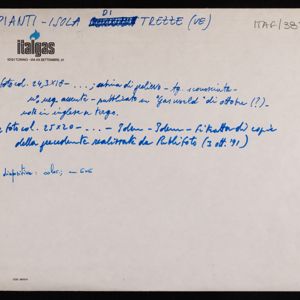 PIANTI - ISOLA DI TREZZE (VE)
ITAF/38
italgas
10121 TORINO - VIA XX SETTEMBRE, 41
foto col. 24,3x18 - ...; cabina di prelievo - fg. sconosciuto -
n° neg. assente - pubblicato in "Gasworld" di ottobre (?) -
note in inglese a tergo.
foto col. 25x20 - ... - Idem - Idem - Si tratta di copia
della precedente realizzata da Publifoto (3 ott. '91)
diapositiva: color;